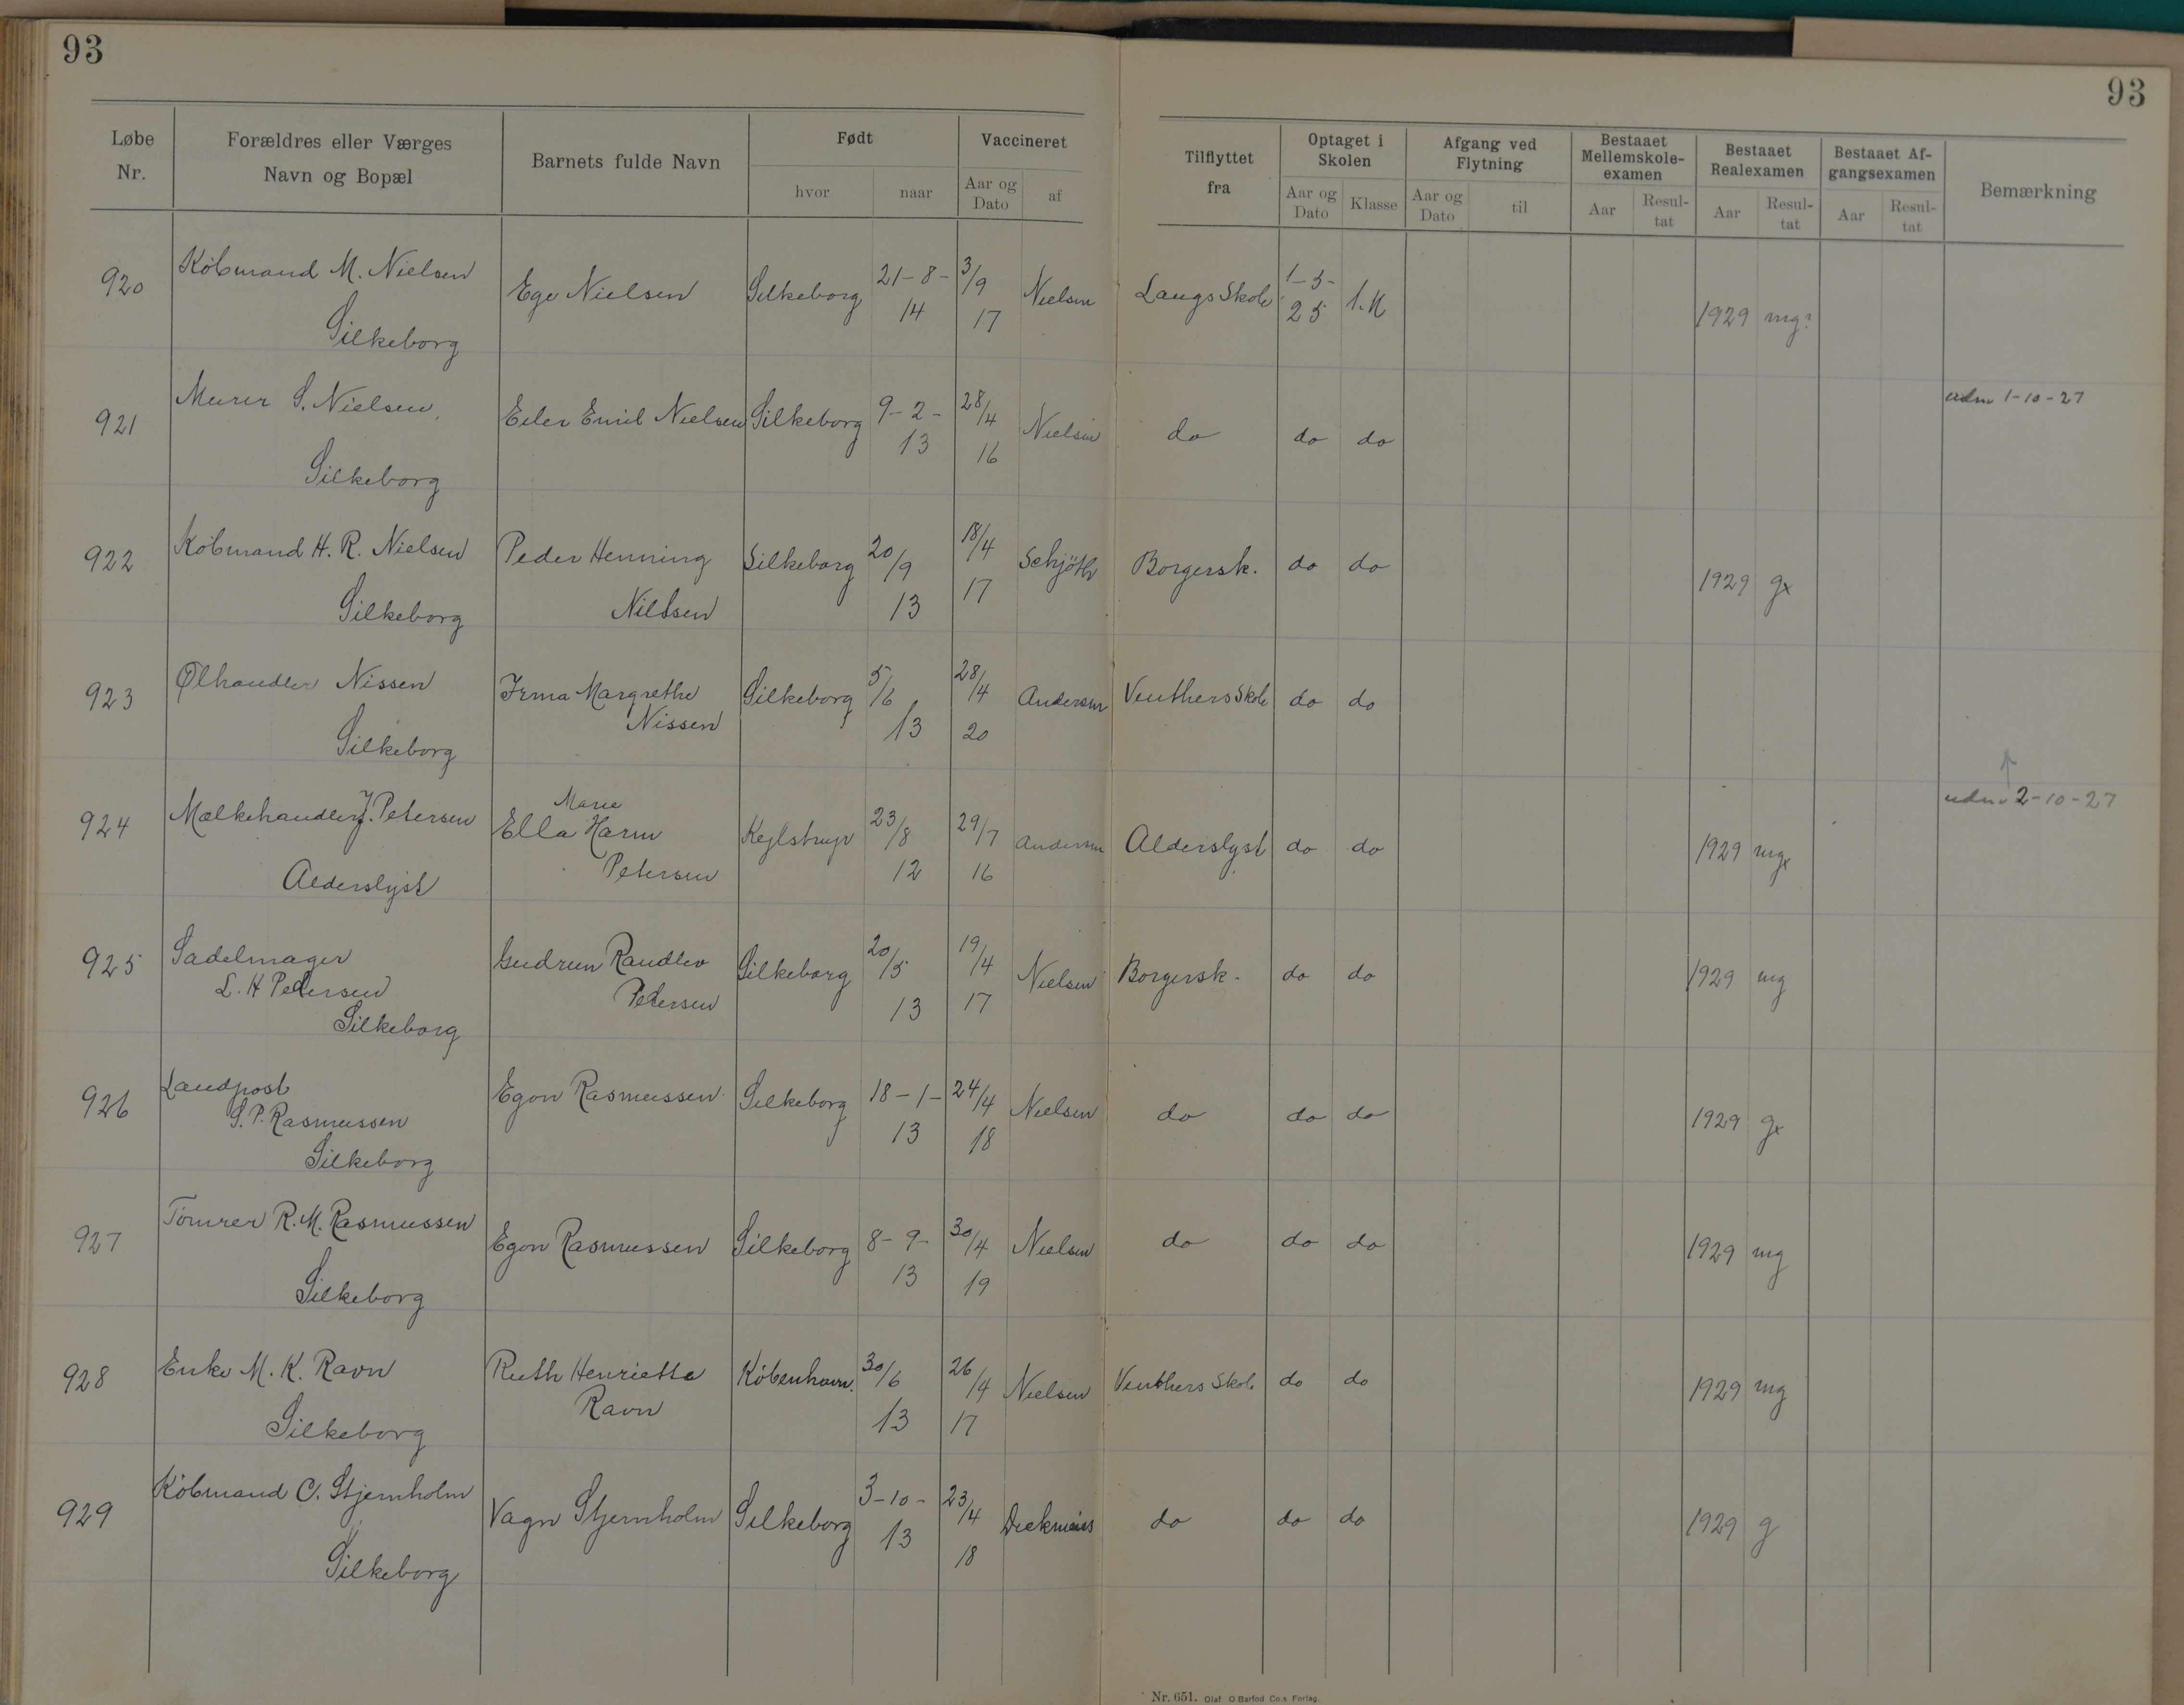 93
93
Løbe Nr.
Forældres eller Værges Navn og Bopæl
Barnets fulde Navn
Født
hvor
naar
Vaccineret
Aar og Dato
af
Tilflyttet fra
Optaget i Skolen
Aar og Dato
Klasse
Afgang ved Flytning
Aar og Dato
til
Bestaaet Mellemskole-examen
Aar
Resul-tat
Bestaaet Realexamen
Aar
Resul-tat
Bestaaet Af-gangsexamen
Aar
Resul-tat
Bemærkning
920 Købmand M. Nielsen Silkeborg Ege Nielsen Silkeborg 21-8-14 3/9 17 Nielsen Langs Skole 1-5-25 1.M 1929 mg?
921 Murer S. Nielsen, Silkeborg Eiler Emil Nielsen Silkeborg 9-2-13 28/4 16 Nielsen do do do udm 1-10-27
922 Købmand H. R. Nielsen Silkeborg Peder Henning Nielsen Silkeborg 20/9 13 18/4 17 Schjöth Borgersk. do do 1929 gx
923 Ølhandler Nissen Silkeborg Irma Margrethe Nissen Silkeborg 5/6 13 28/4 20 Andersen Venthers Skole do do
924 Mælkehandler J. Petersen Alderslyst Ella Marie Harm Petersen Kejlstrup 23/8 12 29/7 16 Andersen Alderslyst do do 1929 mgx ↑ udm 2-10-27
925 Sadelmager L. H Petersen Silkeborg Gudrun Randlev Petersen Silkeborg 20/5 13 19/4 17 Nielsen Borgersk. do do 1929 mg
926 Landpost S. P. Rasmussen Silkeborg Egon Rasmussen Silkeborg 18-1-13 24/4 18 Nielsen do do do 1929 gx
927 Tömrer R. M. Rasmussen Silkeborg Egon Rasmussen Silkeborg 8-9-13 30/4 19 Nielsen do do do 1929 mg
928 Enke M. K. Ravn Silkeborg Ruth Henriette Ravn København. 30/6 13 26/4 17 Nielsen Venthers Skole do do 1929 mg
929 Købmand C. Stjernholm Silkeborg Vagn Stjernholm Silkeborg 3-10-13 23/4 18 do do do 1929 g
Nr. 651. Olaf O Barfod Co.s Forlag.